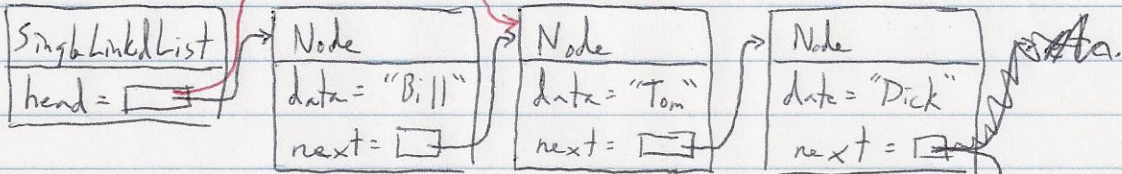 SingleLinkdList
head =
Node
data = "Bill"
next =
Node
data = "Tom"
next =
Node
data = "Dick"
next =